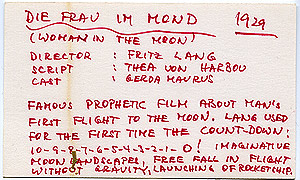 DIE FRAU IM MOND 1929
(WOMAN IN THE MOON)
DIRECTOR : FRITZ LANG
SCRIPT : THEA VON HARBOU
CAST : GERDA MAURUS
FAMOUS PROPHETIC FILM ABOUT MAN'S
FIRST FLIGHT TO THE MOON. LANG USED
FOR THE FIRST TIME THE COUNT-DOWN:
10-9-8-7-6-5-4-3-2-1-0! IMAGINATIVE
MOON LANDSCAPES, FREE FALL IN FLIGHT
WITHOUT GRAVITY, LAUNCHING OF ROCKETSHIP.